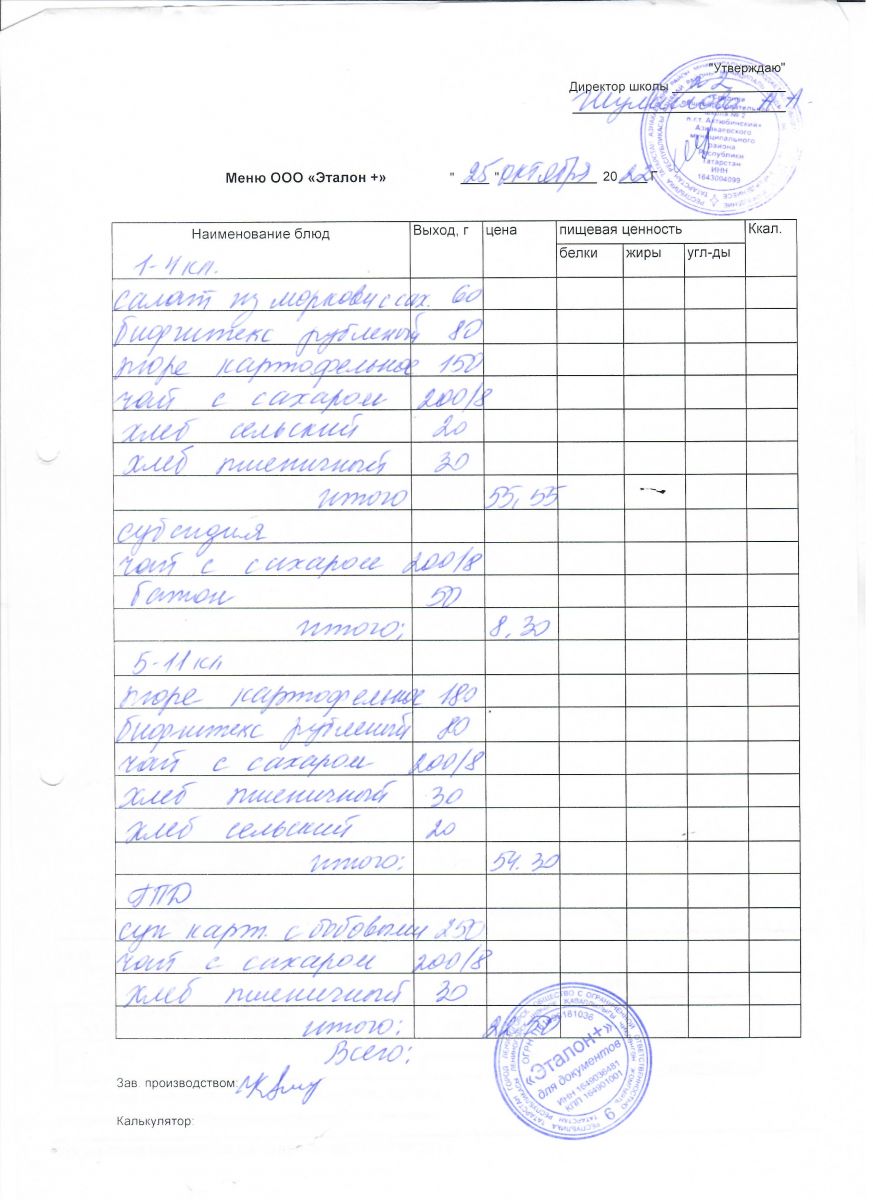 "Утверждаю"
Директор школы №2
Меню ООО «Эталон +» " 25 " октября 2022 г
Наименование блюд Выход, г цена пищевая ценность Ккал.
белки жиры угл-ды
1-4 кл.
салат из моркови с сах. 60
бифштекс рубленый 80
пюре картофельное 150
чай с сахаром 200/8
хлеб сельский 20
хлеб пшеничный 30
итого 55,55
субсидия
чай с сахаром 200/8
батон 50
итого: 8,30
5-11 кл
пюре картофельное 180
бифштекс рубленый 80
чай с сахаром 200/8
хлеб пшеничный 30
хлеб сельский 20
итого: 54.30
ГПД
суп карт. с бобовыми 250
чай с сахаром 200/8
хлеб пшеничный 30
итого:
Всего:
Зав. производством:
Калькулятор:
школа № 2
п.г.т. Актюбинский»
Азнакаевского
муниципального
района
Республики
Татарстан
ИНН
1643004099
«Эталон+»
для документов
ИНН 1649036481
КПП 164901001